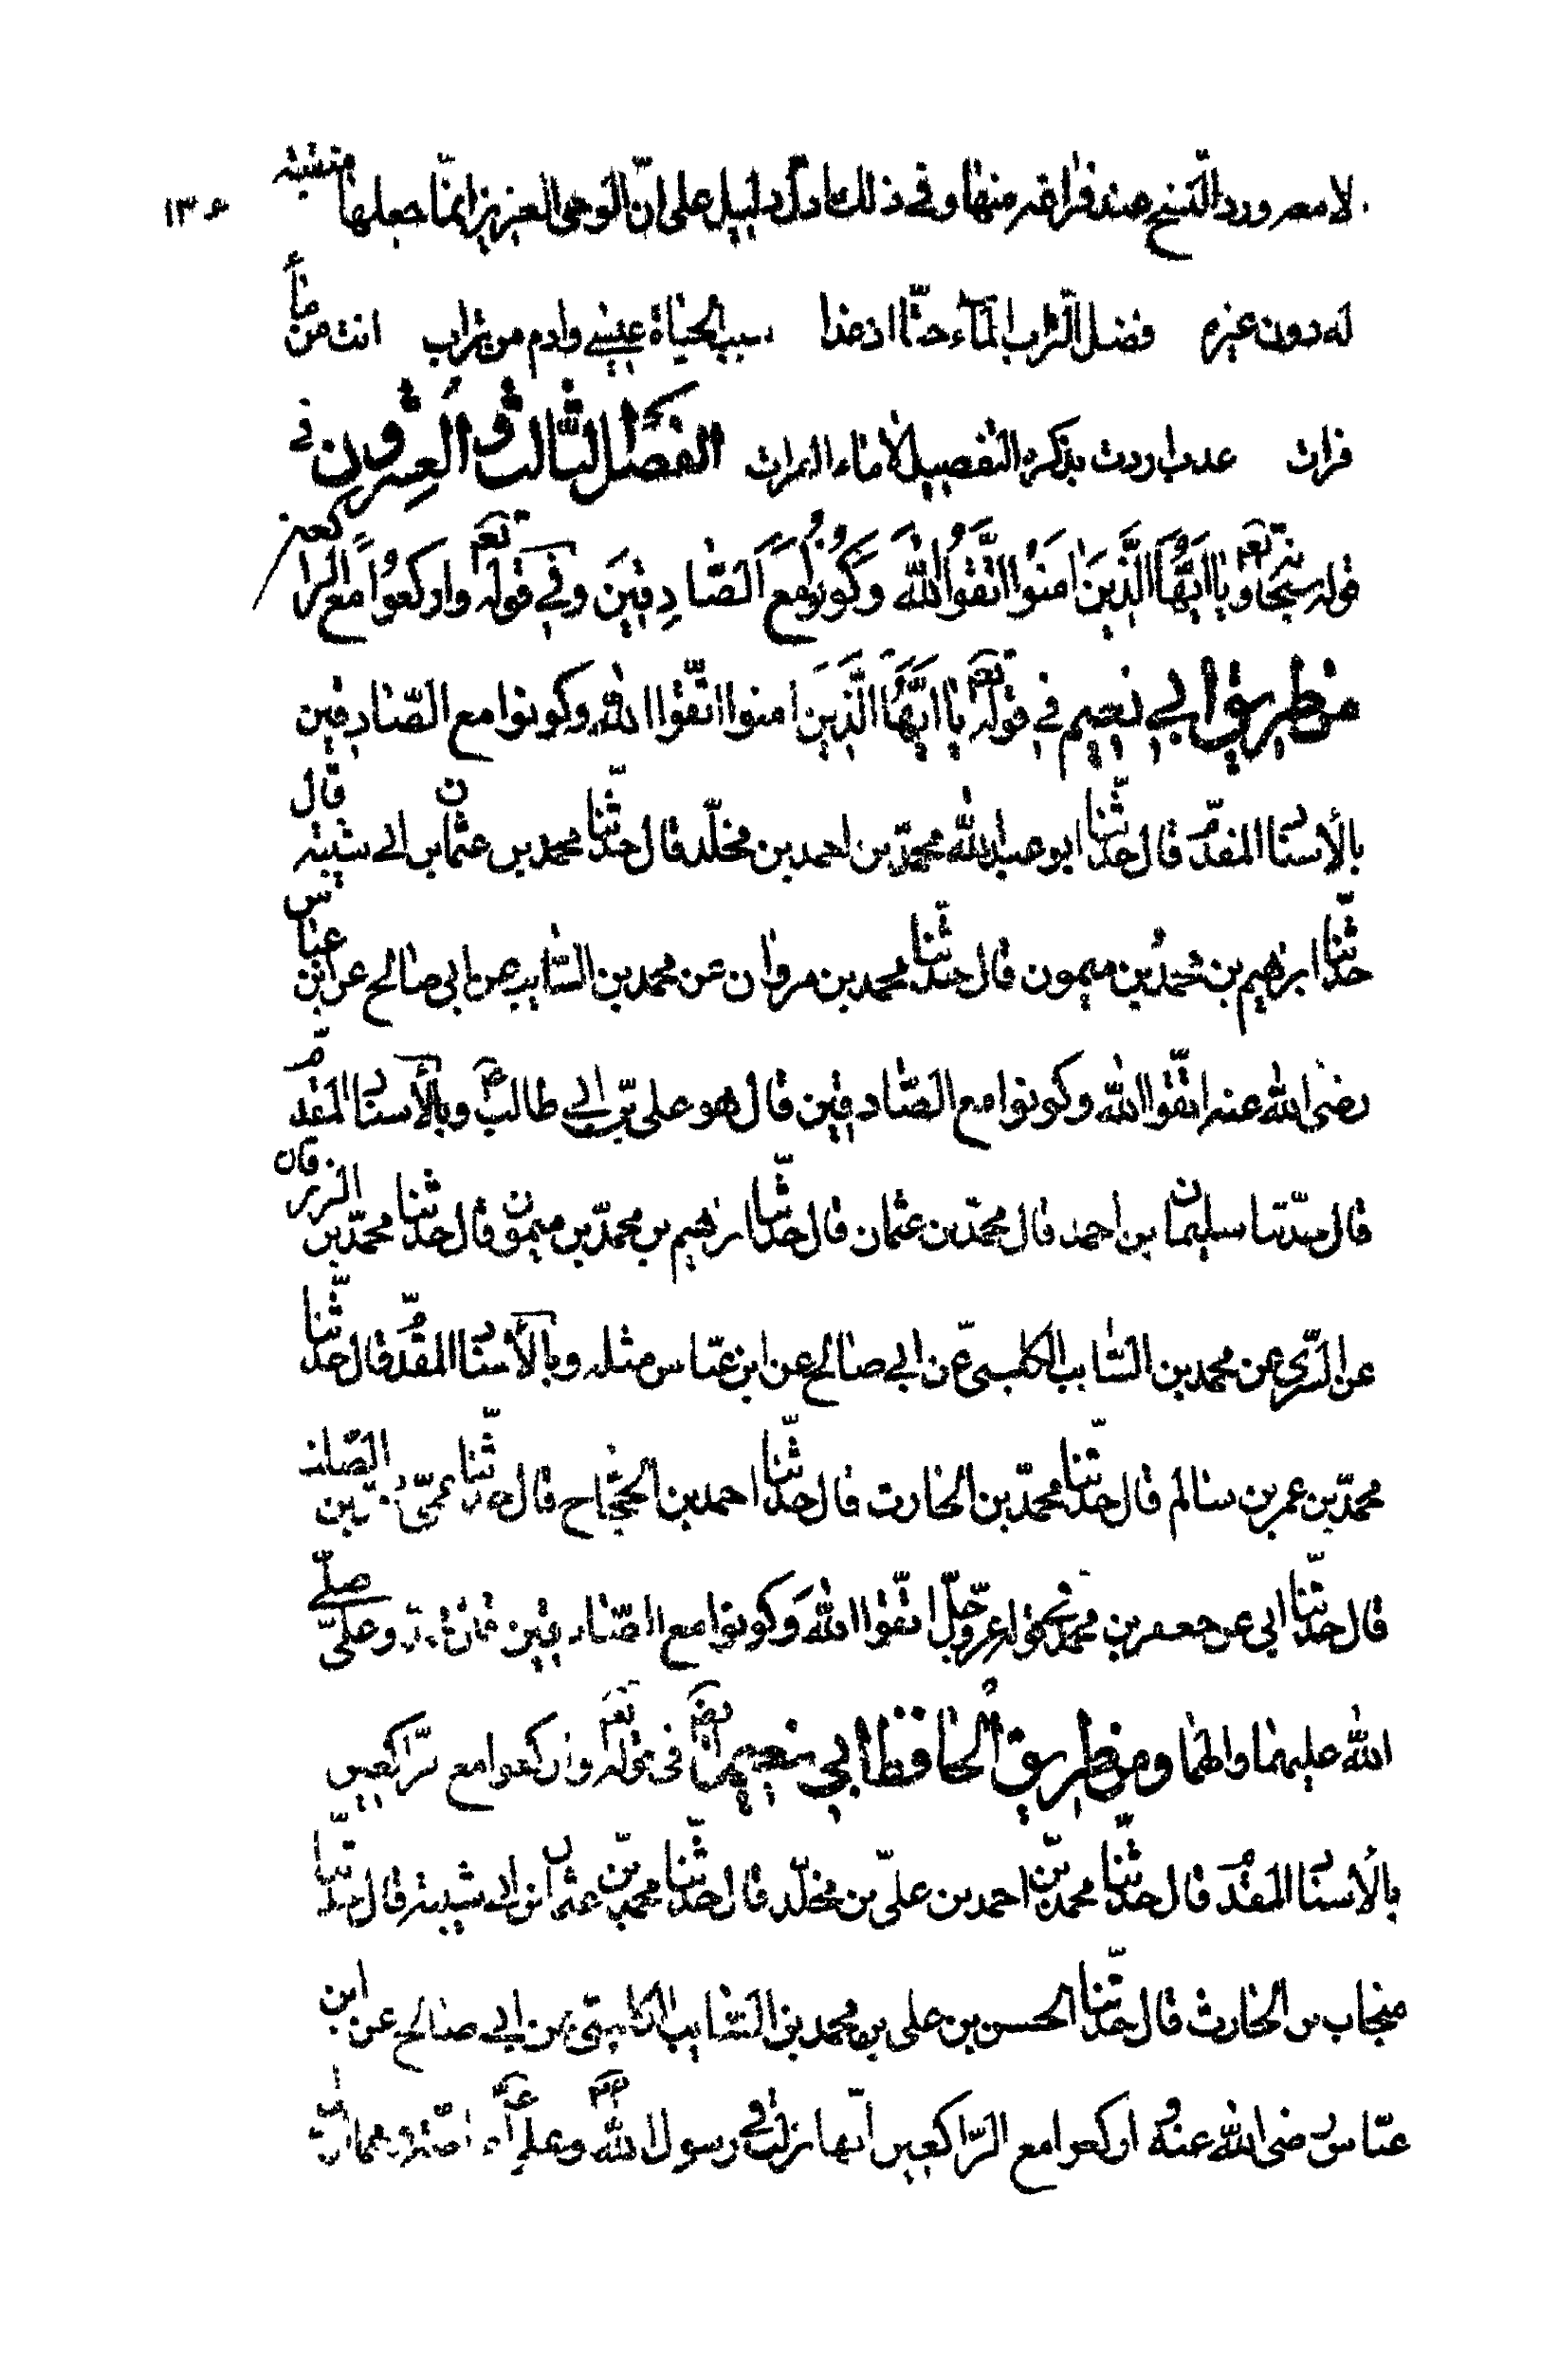 لامعه ورد النسخ عند فراغه منها وفي ذلك ادل دليل على انّ الوحى العزيز انمّا جعلها منقبة ١٣٤
له دون غيره فضل التراب الماء حتّا اذ غدا سبب الحياة عيسے وادم من تراب انت من ماء
فرات عذب اردت بذكره التفصيل لا ماء الفرات الفصل الثالث والعشرون في
قوله سبحانه وتعالى يا ايّهَا الَّذينَ امَنوُا اتَّقوُا اللهَ وَكوُنوُا مَعَ الصّادِقينَ وفي قوله تعالى واركعوُا مع الراكعين
من طريق ابي نعيم في قوله تعالى يا ايّهَا الَّذينَ امنوا اتّقوا الله وكونوا مع الصّادقين
بالأسناد المقدّم قال حدّثنا ابو عبد الله محمّد بن احمد بن مخلّد قال حدّثنا محمد بن عثمان بن ابي شيبه قال
حدّثنا ابرهيم بن محمّد بن ميمون قال حدّثنا محمد بن مروان عن محمد بن السّايب عن ابي صالح عن ابن عباس
رضى الله عنه اتّقوا الله وكونوا مع الصّادقين قال هو على بن ابي طالب ع وبالأسناد المقدّم
قال حدّثنا سليمان بن احمد قال محمّد بن عثمان قال حدّثنا ابرهيم بن محمّد بن ميمون قال حدّثنا محمّد بن الزبرقان
عن السّرى عن محمد بن السّايب الكلبىّ عن ابي صالح عن ابن عبّاس مثله وبالأسناد المقدّم قال حدّثنا
محمّد بن عمر بن سالم قال حدّثنا محمّد بن الحارث قال حدّثنا احمد بن الحجّاح قال حدّثنا محمّد بن الصّلت
قال حدّثنا ابي عن جعفر بن محمّد فى قوله عزّ وجلّ اتّقوا الله وكونوا مع الصّادقين قال محمّد وعلىّ صلّى
الله عليهما والهما ومن طريق الحافظ ابي نعيم ايضا في قوله تعالى واركعوا مع الرّاكعين
بالأسناد المقدّم قال حدّثنا محمّد بن احمد بن علىّ بن مخلّد قال حدّثنا محمد بن عثمان بن ابي شيبة قال حدّثنا
منجاب بن الحارث قال حدّثنا الحسن بن على بن محمد بن السّايب الكلبىّ عن ابي صالح عن ابن
عبّاس رضى الله عنه في اركعوا مع الرّاكعين انّها نزلت في رسول الله ص وعلي ع